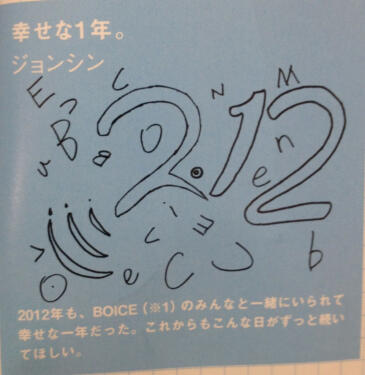 幸せな1年。
ジョンシン
2.12
2012年も、BOICE（※1）のみんなと一緒にいられて
幸せな一年だった。これからもこんな日がずっと続い
てほしい。